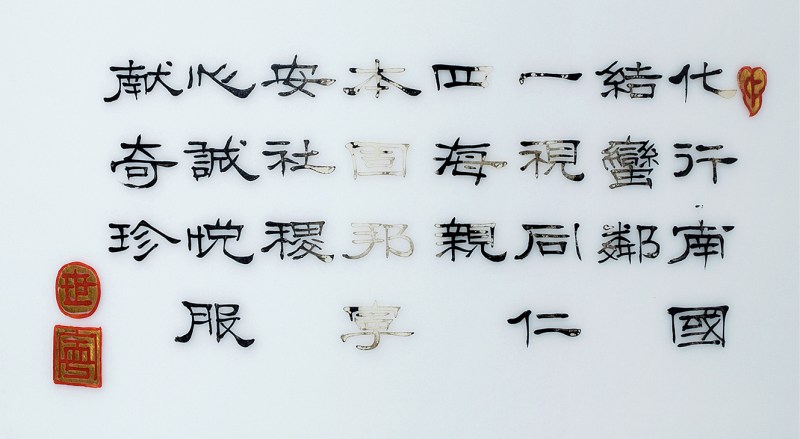 化行南國
結蠻鄰
一視同仁
四海親
本固邦寧
安社稷
心誠悅服
献奇珍
世